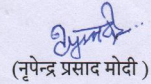 (नृपेन्द्र प्रसाद मोदी )